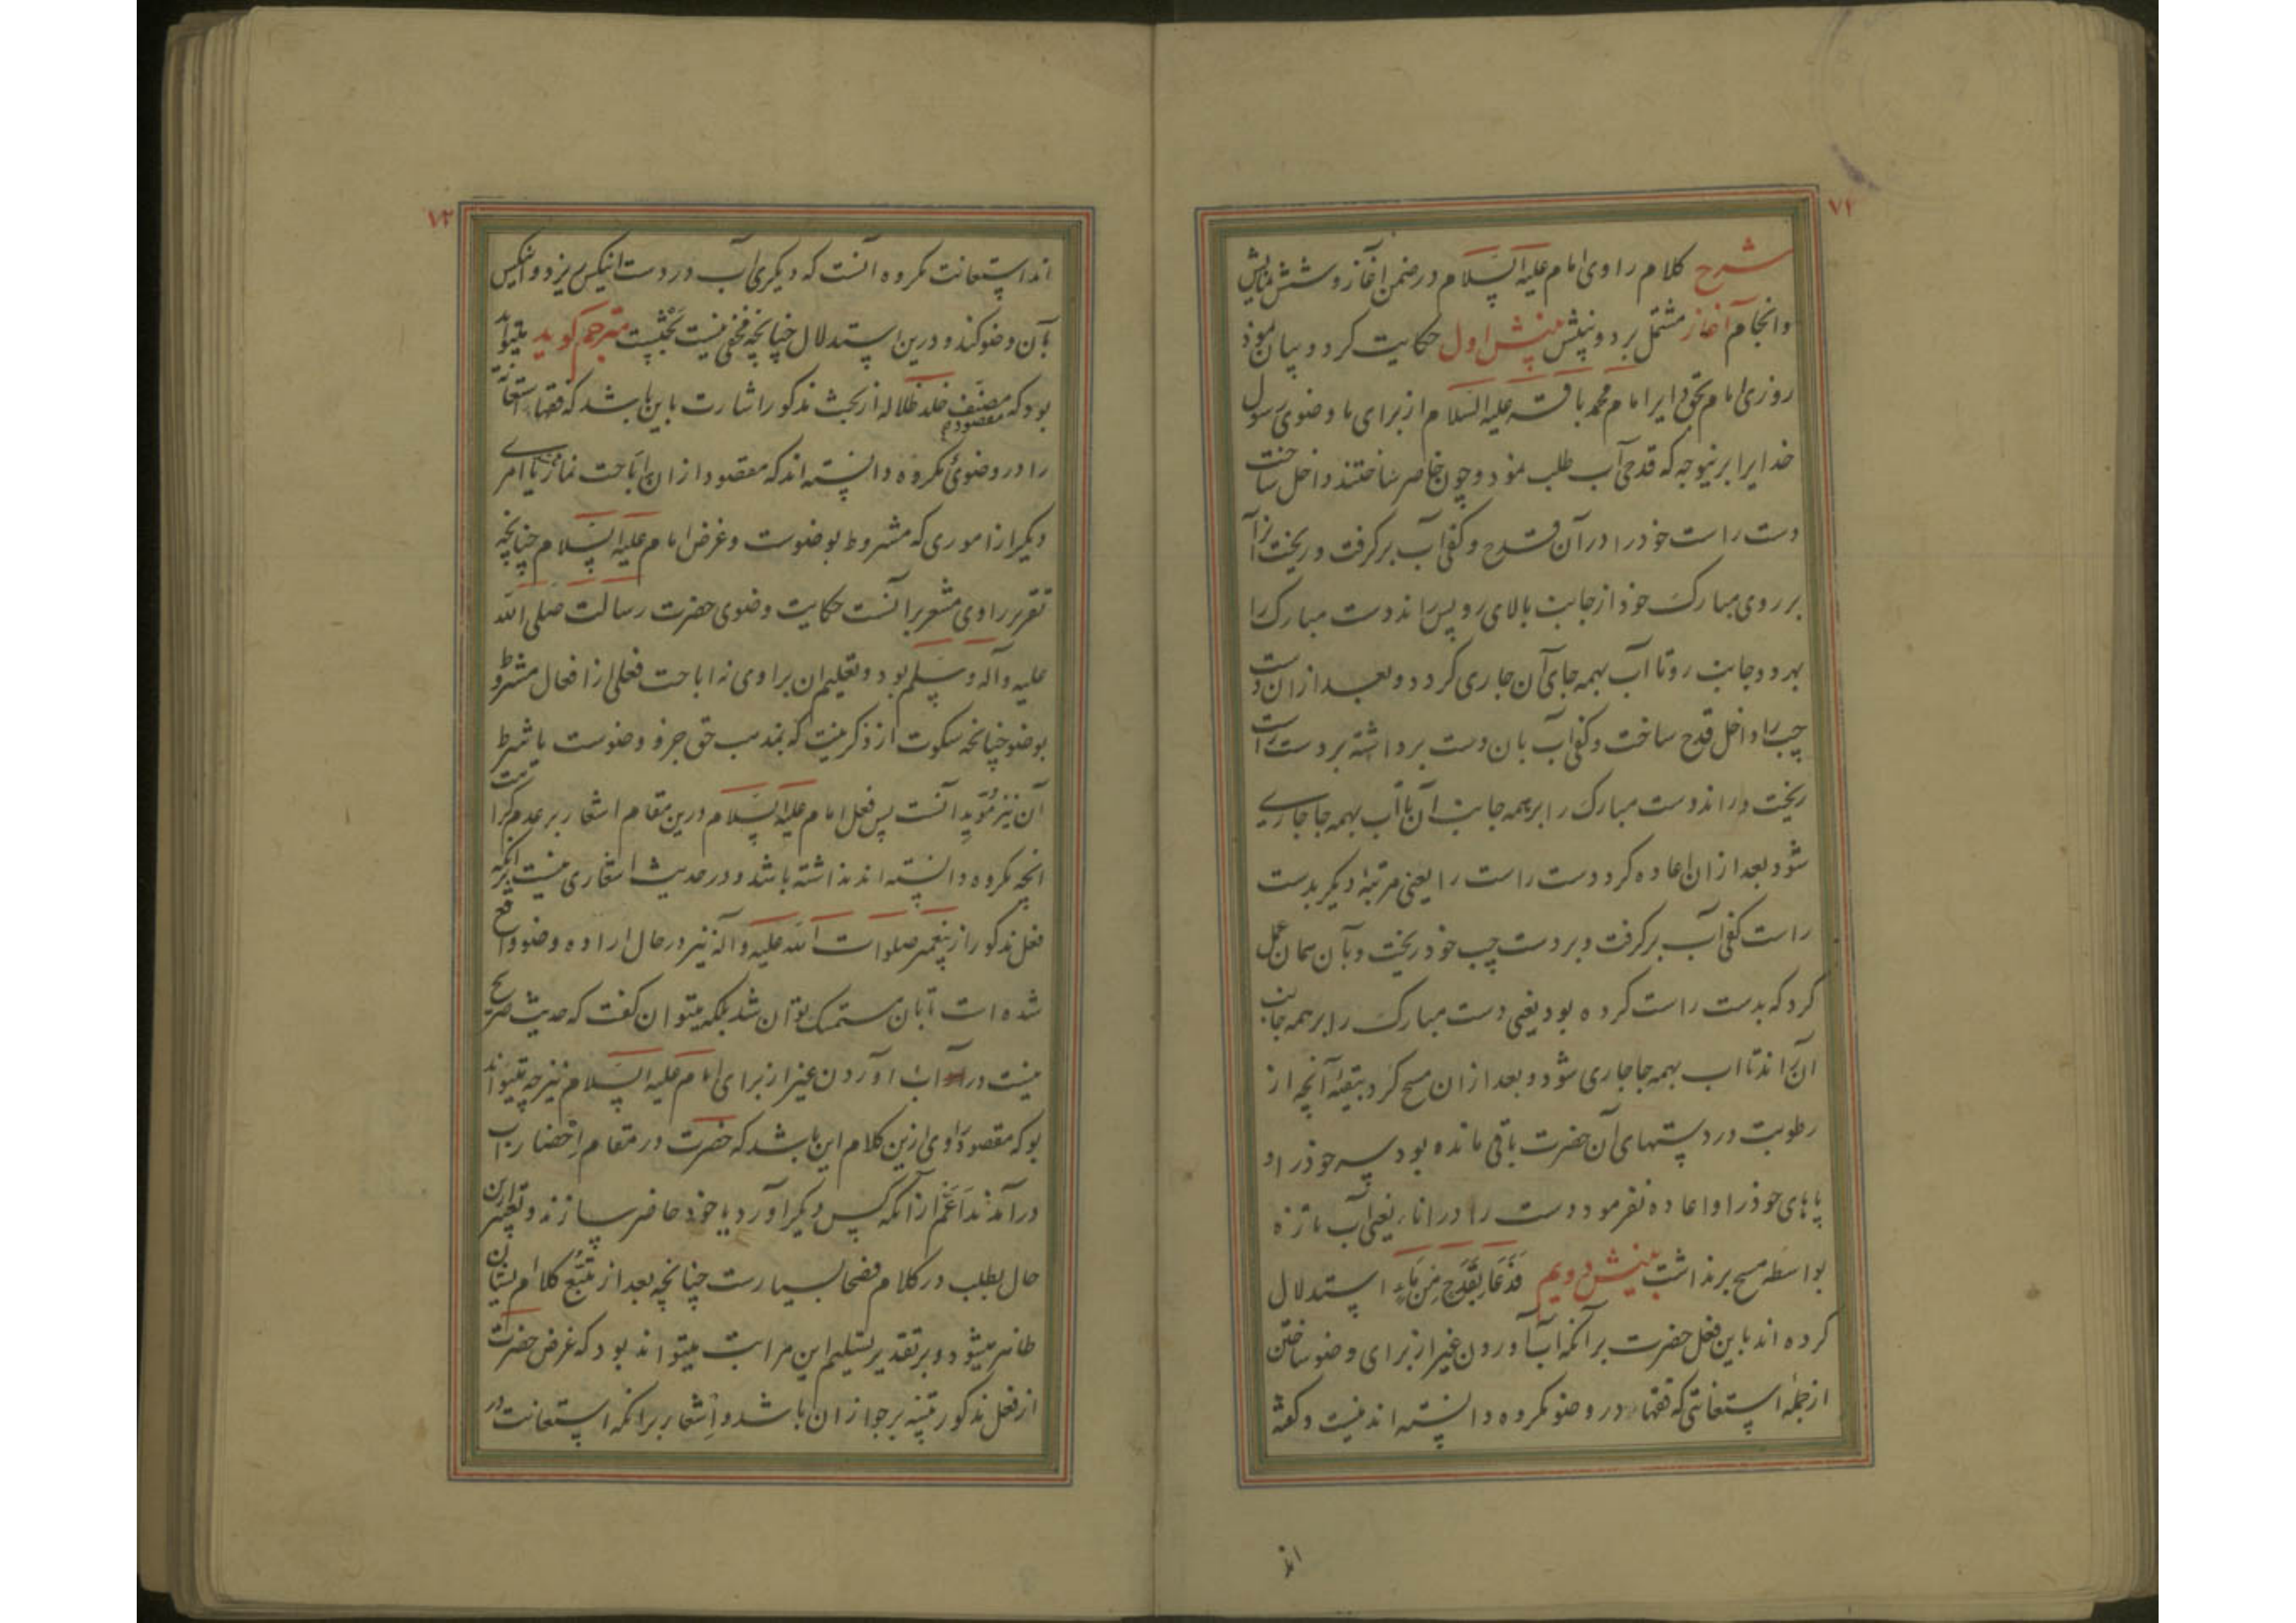 ۷۱
شرح کلام راوی امام علیه السلام در ضمن اغاز و شش نمایش
وانجام آغاز مشتمل بر دو بینش بینش اول حکایت کرد و بیان نمود
روزی امام بحق ابو امام محمد باقر علیه السلام از برای ما وضوی رسول
خدا را برینوجه که قدحی آب طلب نمود و چون حاضر ساختند داخل ساخت
دست راست خود را در آن قدح و کفی آب برگرفت و ریخت آنرا
بر روی مبارک خود از جانب بالای رو پس راند دست مبارک را
بهر دو جانب رو تا آب بهمه جای آن جاری کردد و بعد از ان دست
چپ را داخل قدح ساخت و کفی آب بان دست برداشته بر دست راست
ریخت و راند دست مبارک را بر همه جانب آن تا آب بهمه جا جاری
شود بعد از ان اعاده کرد دست راست را یعنی مرتبهٔ دیکر بدست
راست کفی آب برکرفت و بر دست چپ خود ریخت و بآن همان عمل
کرد که بدست راست کرده بود یعنی دست مبارک را بر همه جانب
آن راند تا اب بهمه جا جاری شود و بعد از ان مسح کرد ببقیهٔ آنچه از
رطوبت در دستهای آن حضرت باقی مانده بود سر خود را و
پاهای خود را و اعاده نفرمود دست را در اناء یعنی آب تازه
بواسطه مسح برنداشت بینش دویم فَدَعَا بِقَدَحٍ مِن مَاءٍ استدلال
کرده اند باین فعل حضرت بر آنکه آب آوردن غیر از برای وضو ساختن
از جمله استعانتی که فقهاء در وضو مکروه دانسته اند نیست و کفته
اند
۷۲
اند استعانت مکروه آنست که دیکری آب در دست انیکس ریزد و انیکس
بآن وضو کند و درین استدلال چنانچه مخفی نیست بحثیست مترجم کوید میتواند
بود که مصنف خلد ظلاله از بحث مذکور اشارت باین باشد که فقهاء استعانت
مقصود
را در وضوئی مکروه دانسته اند که مقصود از ان اباحت نماز یا امری
دیکر از اموری که مشروط بوضوست و غرض امام علیه السلام چنانچه
تقریر راوی مشعر بر آنست حکایت وضوی حضرت رسالت صلی الله
علیه وآله وسلم بود و تعلیم ان براوی نه اباحت فعلی از افعال مشروط
بوضو چنانچه سکوت از ذکر نیت که بمذهب حق جزو وضوست یا شرط
آن نیز مؤید آنست پس فعل امام علیه السلام درین مقام اشعار بر عدم کراهت
انچه مکروه دانسته اند نداشته باشد و در حدیث اشعاری نیست برآنکه
فعل مذکور از پیغمبر صلوات الله علیه وآله نیز در حال اراده وضو واقع
شده است تا بان متمسک توان شد بلکه میتوان کفت که حدیث صریح
نیست در آب آوردن غیر از برای امام علیه السلام نیز چه میتواند
بود که مقصود راوی ازین کلام این باشد که حضرت در مقام احضار آب
درآمدند اَعَم از آنکه کس دیکر آورد یا خود حاضر سازند و تعبیر ازین
حال بطلب در کلام فصحا بسیارست چنانچه بعد از تتبع کلام ایشان
ظاهر میشود و بر تقدیر تسلیم این مراتب میتواند بود که غرض حضرت
از فعل مذکور تنبیه بر جواز ان باشد و اشعار بر انکه استعانت در